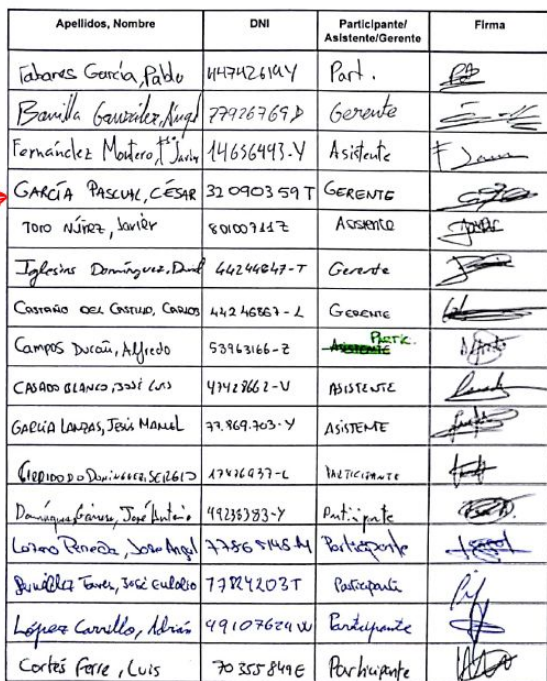 Apellidos, Nombre DNI Participante/ Asistente/Gerente Firma
Tabares García, Pablo 44742619Y Part.
González, Ángel 77926769D Gerente
Fernández Montero, Javier 14636493-Y Asistente
GARCÍA PASCUAL, CÉSAR 32090359T GERENTE
TORO NÚÑEZ, Javier 80100711Z ASISTENTE
Iglesias Domínguez, David 44244847-T Gerente
CASTAÑO DEL CASTILLO, CARLOS 44246867-L GERENTE
Campos Ducañ, Alfredo 53963166-Z Partic.
CASADO BLANCO, JOSÉ LUIS 47428662-V ASISTENTE
GARCIA LANZAS, Jesús Manuel 77.869.703-Y ASISTENTE
DOMINGUEZ, SERGIO 17476937-L PARTICIPANTE
José Antonio 49235383-Y Participante
Lozano Pereda, Jose Angel 77865148-M Participante
José Eulalio 77824203T Participante
López Carrillo, Adrián 49107624W Participante
Cortés Ferre, Luis 70355849E Participante